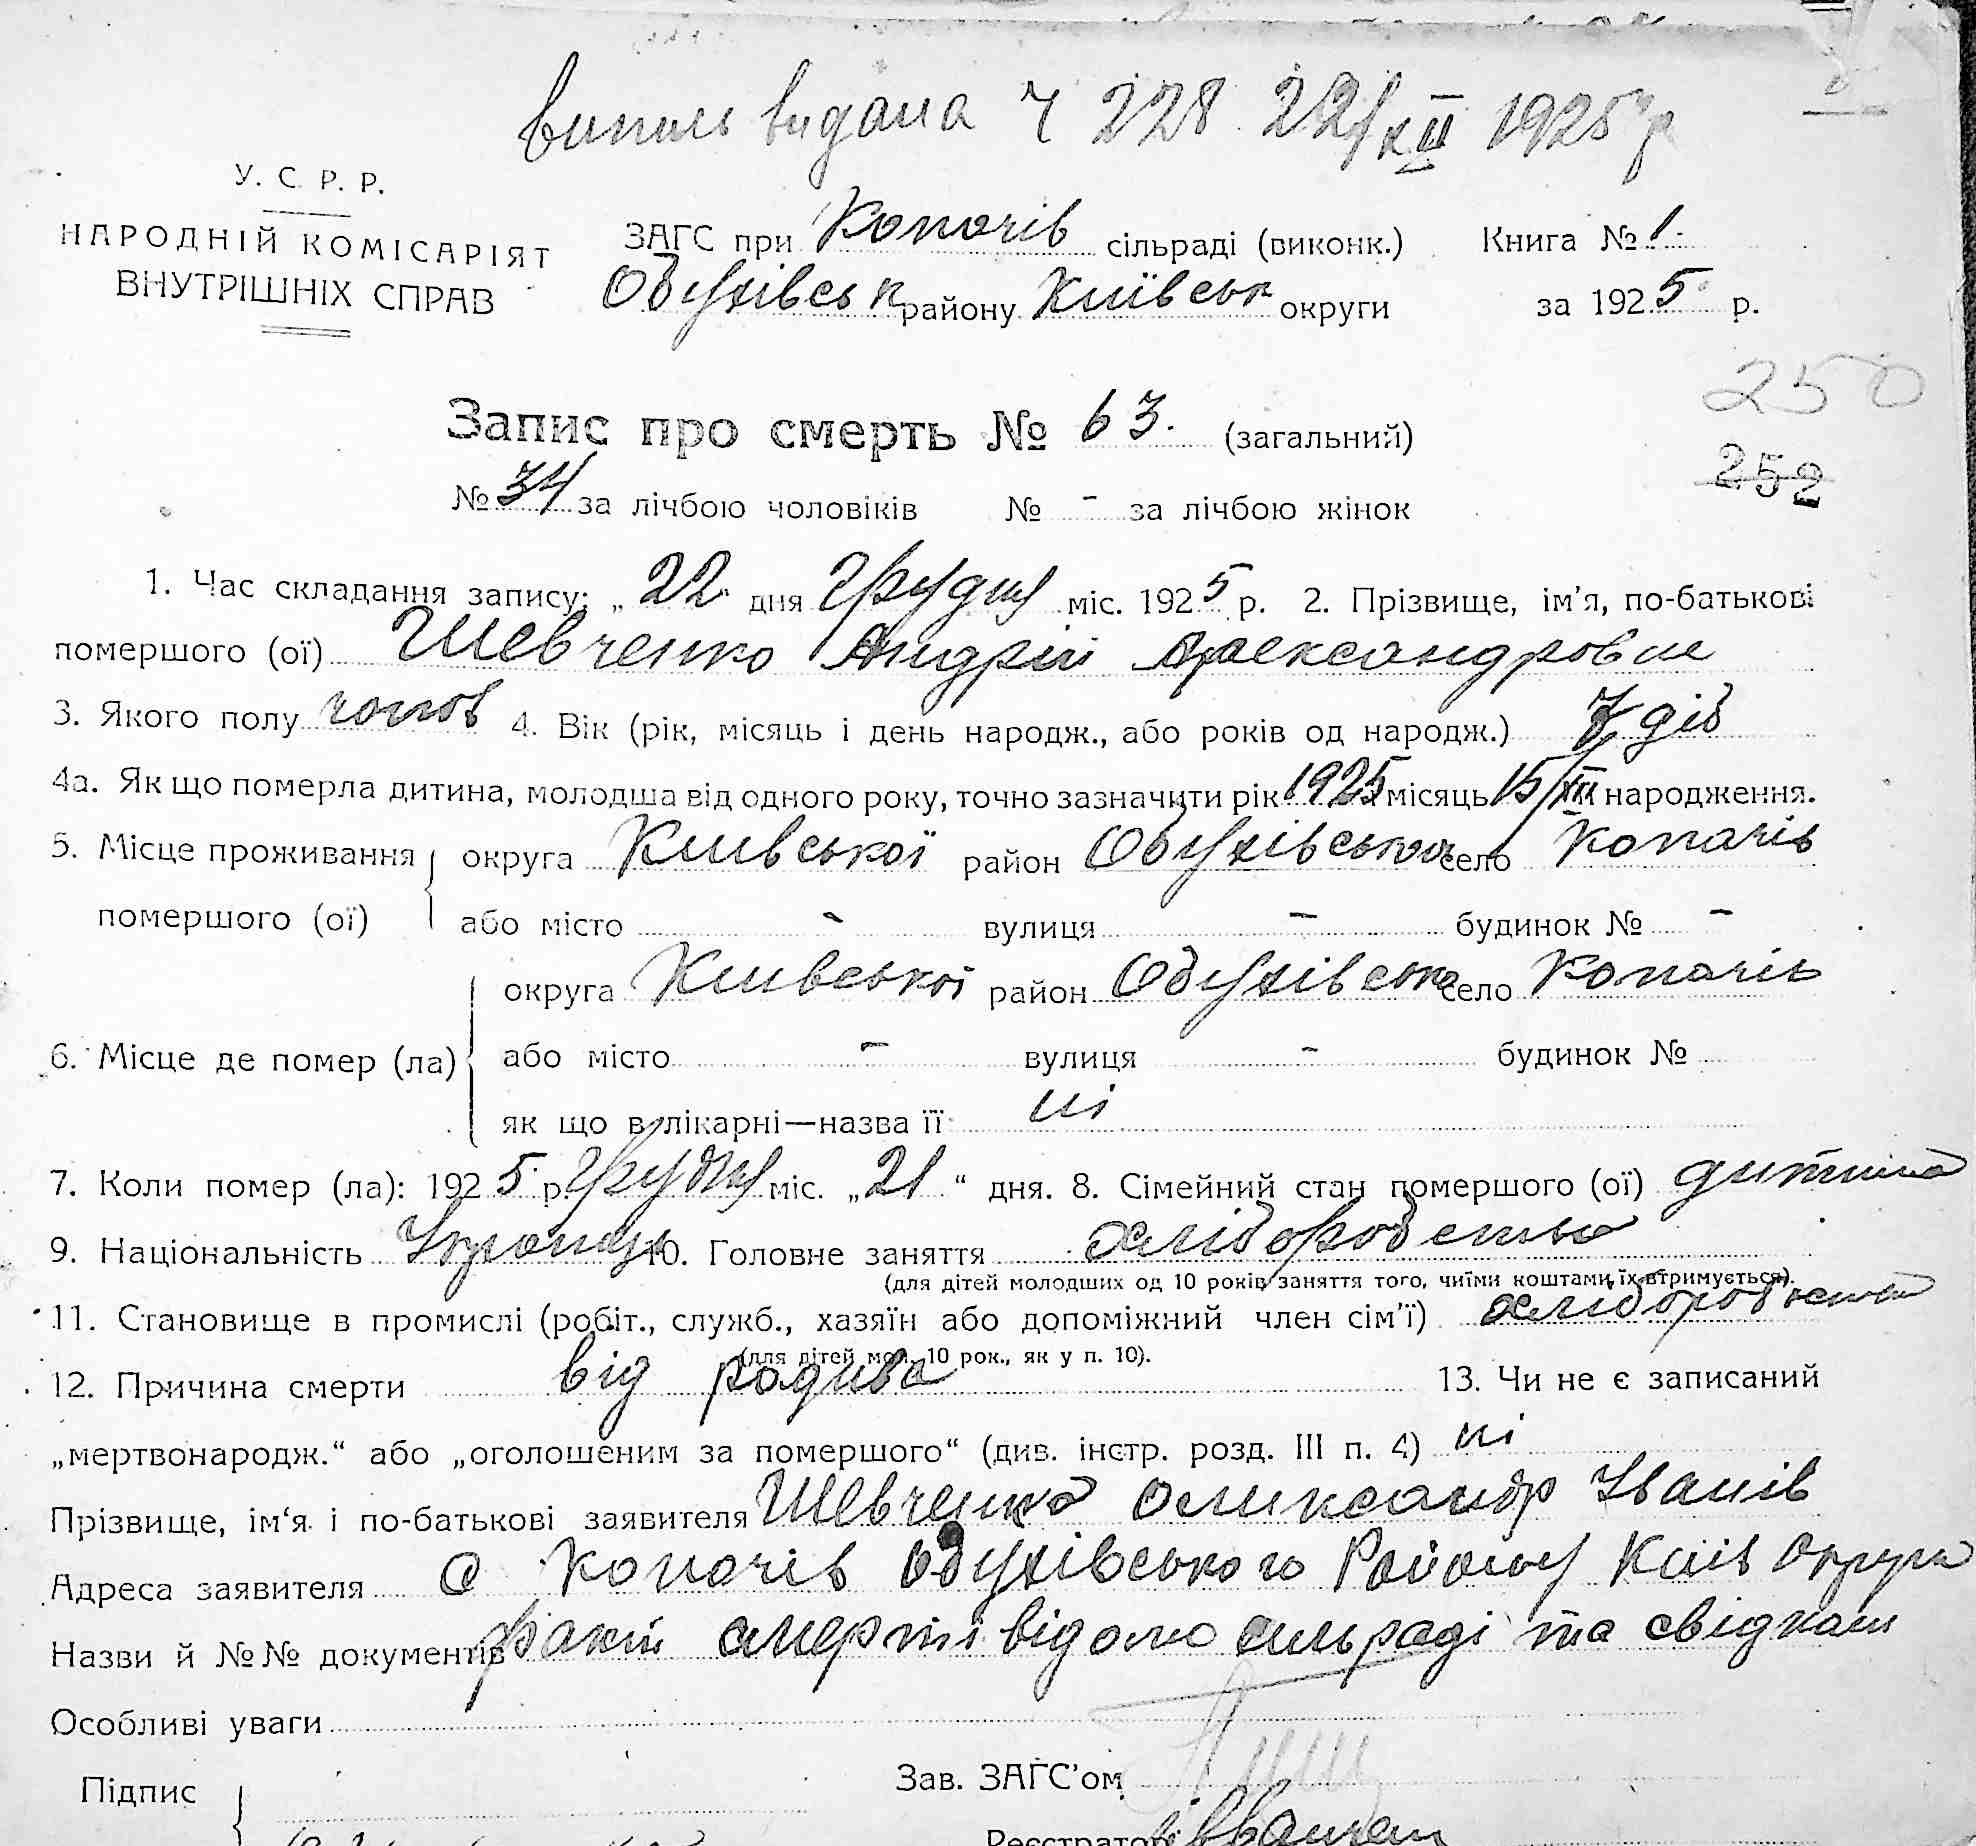 випись видана Ч 228 22/XII 1925 р
У. С. Р. Р.
НАРОДНІЙ КОМІСАРІЯТ
ВНУТРІШНІХ СПРАВ
ЗАГС при Копачів сільраді (виконк.) Книга № 1.
Обухівськ району Київськ округи за 1925 р.
250
Запис про смерть № 63. (загальний)
252
№ 34 за лічбою чоловіків № - за лічбою жінок
1. Час складання запису: „22" дня Грудня міс. 1925 р. 2. Прізвище, ім'я, по-батькові
помершого (ої) Шевченко Андрій
3. Якого полу чолов 4. Вік (рік, місяць і день народж., або років од народж.) 7 діб
4а. Як що померла дитина, молодша від одного року, точно зазначити рік 1925 місяць 15/XII народження.
5. Місце проживання округа Київської район Обухівськой село Копачів
помершого (ої) або місто - вулиця - будинок № -
округа Київської район Обухівська село Копачів
6. Місце де помер (ла) або місто - вулиця - будинок №
як що в лікарні—назва її ні
7. Коли помер (ла): 1925 р. Грудня міс. „21" дня. 8. Сімейний стан помершого (ої) дитина
9. Національність 10. Головне заняття хліборобство
(для дітей молодших од 10 років, заняття того, чиїми коштами їх втримується).
11. Становище в промислі (робіт., служб., хазяїн або допоміжний член сім'ї)
(для дітей мол. 10 рок., як у п. 10).
12. Причина смерти від родива 13. Чи не є записаний
„мертвонародж." або „оголошеним за помершого" (див. інстр. розд. III п. 4) ні
Прізвище, ім'я і по-батькові заявителя Шевченко Олександр Іванів
Адреса заявителя С Копачів Обухівського Району Київ Округи
Назви й №№ документів факт смерти відомо сильраді та свідкам
Особливі уваги
Підпис Зав. ЗАГС'ом
Реєстратор